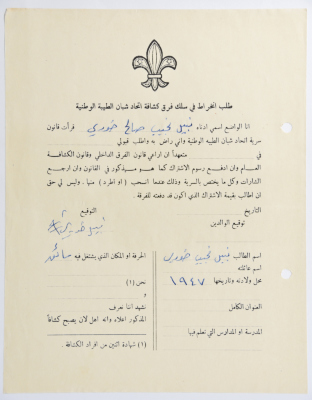 طلب انخراط في سلك فرق كشافة اتحاد شبان الطيبة الوطنية
انا الواضع اسمي ادناه نبيل نجيب صالح خوري قرأت قانون
سرية اتحاد شبان الطيبه الوطنية واني راض به واطلب قبولي
في متعهداً بان اراعي قانون الفرق الداخلي وقانون الكشافة
العام وان ادفع رسوم الاشتراك كما هو مذكور في القانون وان ارجع
الشارات وكل ما يختص بالسرية وذلك عندما انسحب (او اطرد) منها . وليس لي حق
ان اطالب بقيمة الاشتراك الذي اكون قد دفعته للفرقة .
التاريخ التوقيع
توقيع الوالدين
اسم الطالب نبيل نجيب خوري
اسم عائلته
محل ولادته وتاريخها ١٩٤٧
العنوان الكامل
المدرسة او المدارس التي تعلم فيها
الحرفة او المكان الذي يشتغل فيه
نحن (١)
و
نشهد اننا نعرف
المذكور اعلاه وانه اهل لان يصبح كشافاً
(١) شهادة اثنين من افراد الكشافة .